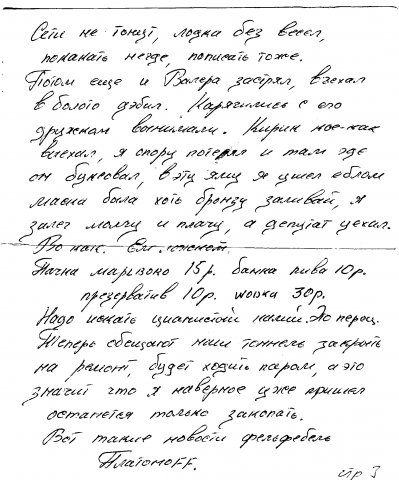 Сети не тонут, лодка без весел,
покакать негде, пописать тоже.
Потом еще и Валера застрял, въехал
в болото дебил. Корячились с его
дружком вынимали. Кирик кое-как
выехал, я опору потерял и там где
он буксовал, в эту яму я ушел еблом
масна была хоть бронзу заливай, я
залег молчу и плачу, а депутат уехил.
Во как.
Пачка мальборо 15р. банка пива 10р.
презерватив 10р. wодка 30р.
Надо искать цианистый калий. Это перец.
Теперь обещают наш тоннель закрыть
на ремонт, будет ходить паром, а это
значит что я наверное уже пришел
останется только закопать.
Вот такие новости фельфебель
ПлатоноFF.
стр 3